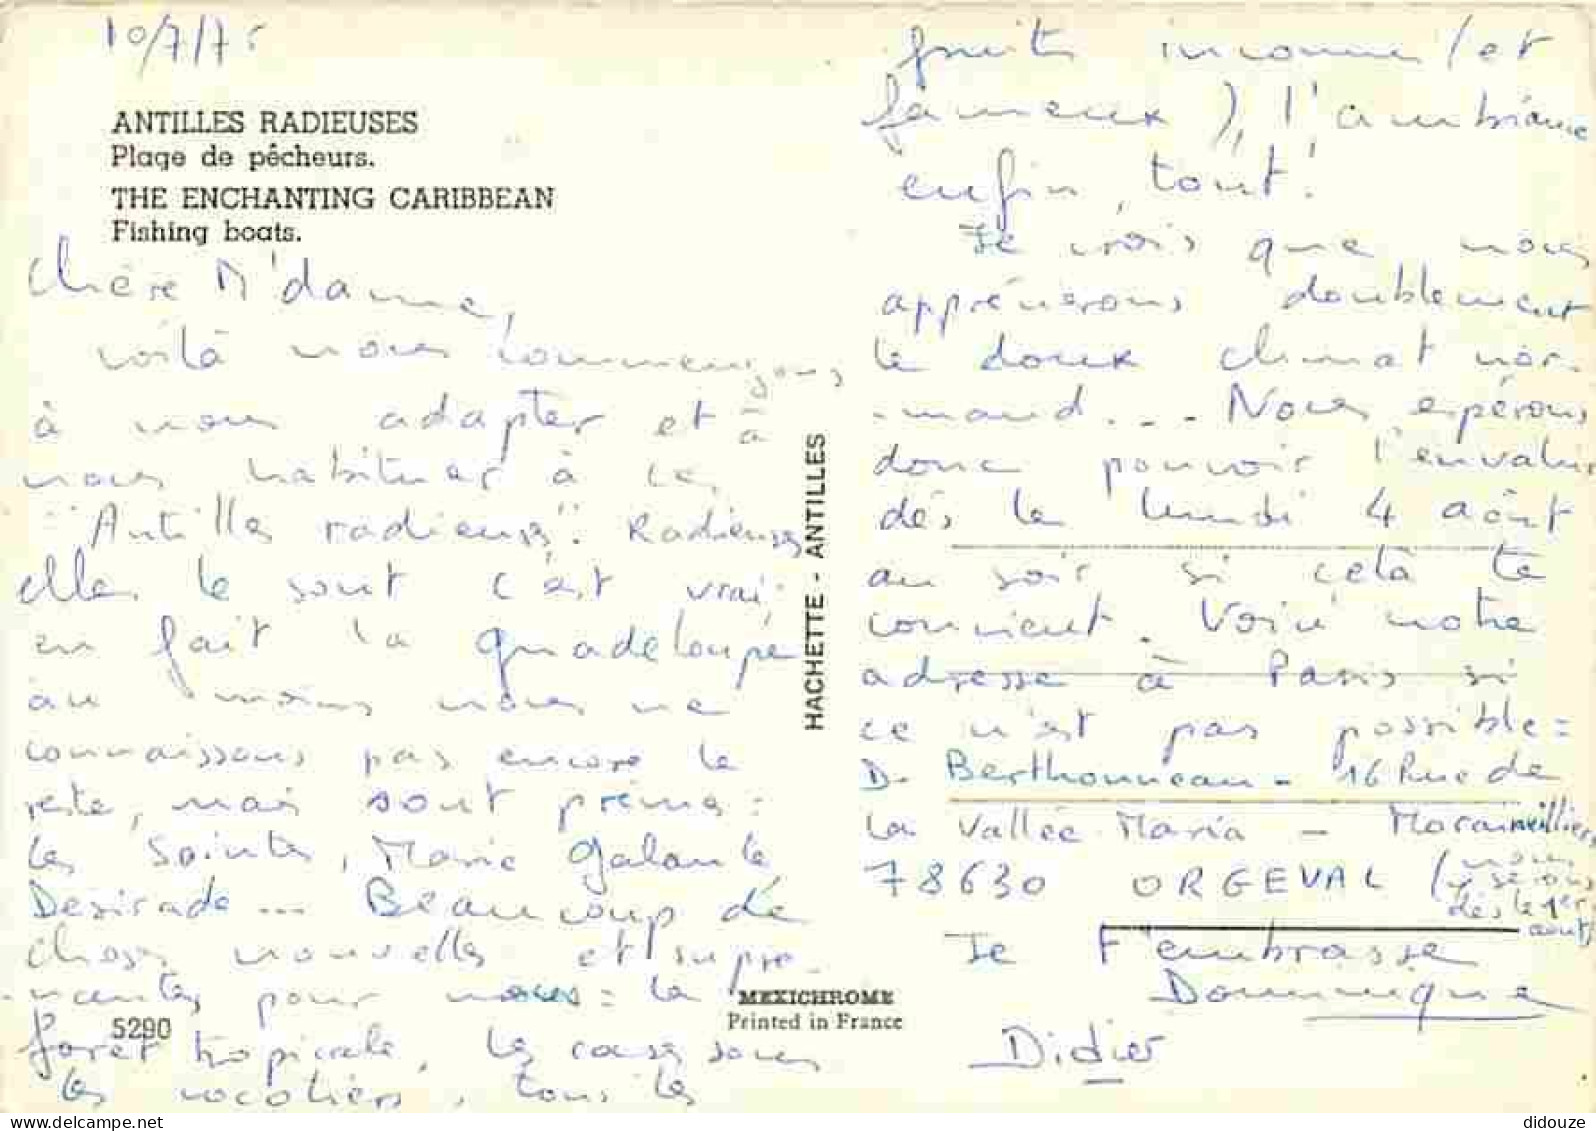 10/7/75
ANTILLES RADIEUSES
Plage de pêcheurs.
THE ENCHANTING CARIBBEAN
Fishing boats.
Chère M'dame,
voilà nous commençons
à nous adapter et à
nous habituer à ces
"Antilles radieuses". Radieuses
elles le sont c'est vrai;
en fait la Guadeloupe
au moins nous ne
connaissons pas encore le
reste, mais sont prévus :
les Saintes, Marie Galante
Desirade... Beaucoup de
choses nouvelles et surpre-
nantes pour nous : la
foret tropicale, les cases sous
les cocotiers, tous les
5290
HACHETTE - ANTILLES
MEXICHROME
Printed in France
fruits inconnus (et
fameux), l'ambiance
enfin, tout!
Je crois que nous
apprécierons doublement
le doux climat nor-
-mand... Nous espérons
donc pouvoir t'envahir
dès le lundi 4 août
au soir si celà te
convient. Voici notre
adresse à Paris si
ce n'est pas possible =
D. Berthonneau - 16 Rue de
la Vallée Maria - Morainvilliers
78630 ORGEVAL (nous
y serons
dès le 1er
août)
Je t'embrasse
Dominique
Didier
didouze